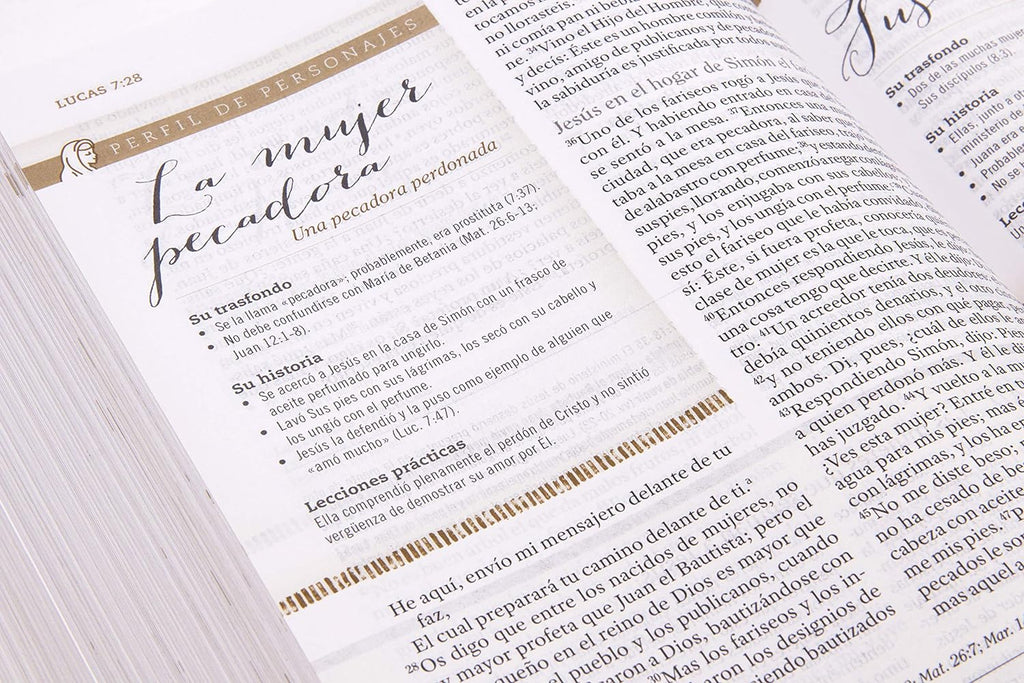 LUCAS 7:28
PERFIL DE PERSONAJES
La mujer
pecadora
Una pecadora perdonada
Su trasfondo
• Se la llama «pecadora»; probablemente, era prostituta (7:37).
• No debe confundirse con María de Betania (Mat. 26:6-13;
Juan 12:1-8).
Su historia
• Se acercó a Jesús en la casa de Simón con un frasco de
aceite perfumado para ungirlo.
• Lavó Sus pies con sus lágrimas, los secó con su cabello y
los ungió con el perfume.
• Jesús la defendió y la puso como ejemplo de alguien que
«amó mucho» (Luc. 7.47).
Lecciones prácticas
Ella comprendió plenamente el perdón de Cristo y no sintió
vergüenza de demostrar su amor por Él.
He aquí, envío mi mensajero delante de tu
faz,
El cual preparará tu camino delante de ti.a
28Os digo que entre los nacidos de mujeres, no
mayor profeta que Juan el Bautista; pero el
queño en el reino de Dios es mayor que
el pueblo y los publicanos, cuando
aron a Dios, bautizándose con
30Mas los fariseos y los in-
aron los designios de
iendo bautizados
en la
tocamos
no llorasteis.
ni comía pan ni beb
34Vino el Hijo del Hom
y decís: Éste es un hombre comil
vino, amigo de publicanos y de peca
la sabiduría es justificada por todos
Jesús en el hogar de Simón el
36Uno de los fariseos rogó a Jesús qu
con él. Y habiendo entrado en casa d
se sentó a la mesa. 37Entonces una
ciudad, que era pecadora, al saber q
taba a la mesa en casa del fariseo, traj
de alabastro con perfume; 38y estando
sus pies, llorando, comenzó a regar con
pies, y los enjugaba con sus cabello
sus pies, y los ungía con el perfume.
esto el fariseo que le había convidado
sí: Éste, si fuera profeta, conocería
clase de mujer es la que le toca, que e
40Entonces respondiendo Jesús, le d
una cosa tengo que decirte. Y él le di
tro. 41Un acreedor tenía dos deudore
debía quinientos denarios, y el otro
42y no teniendo ellos con qué pagar,
ambos. Di, pues, ¿cuál de ellos le
43Respondiendo Simón, dijo: Pie
a quien perdonó más. Y él le d
has juzgado. 44Y vuelto a la mu
¿Ves esta mujer? Entré en tu
agua para mis pies; mas é
con lágrimas, y los ha en
45No me diste beso;
no ha cesado de be
cabeza con aceite
me mis pies. 47P
pecados le so
mas aquel a
Mat. 26:7; Mar. 1
Su trasfondo
• Dos de las muchas muje
Sus discípulos (8:3).
Su historia
• Ellas, junto a o
ministerio de
• Juana era
• Probable
• No se